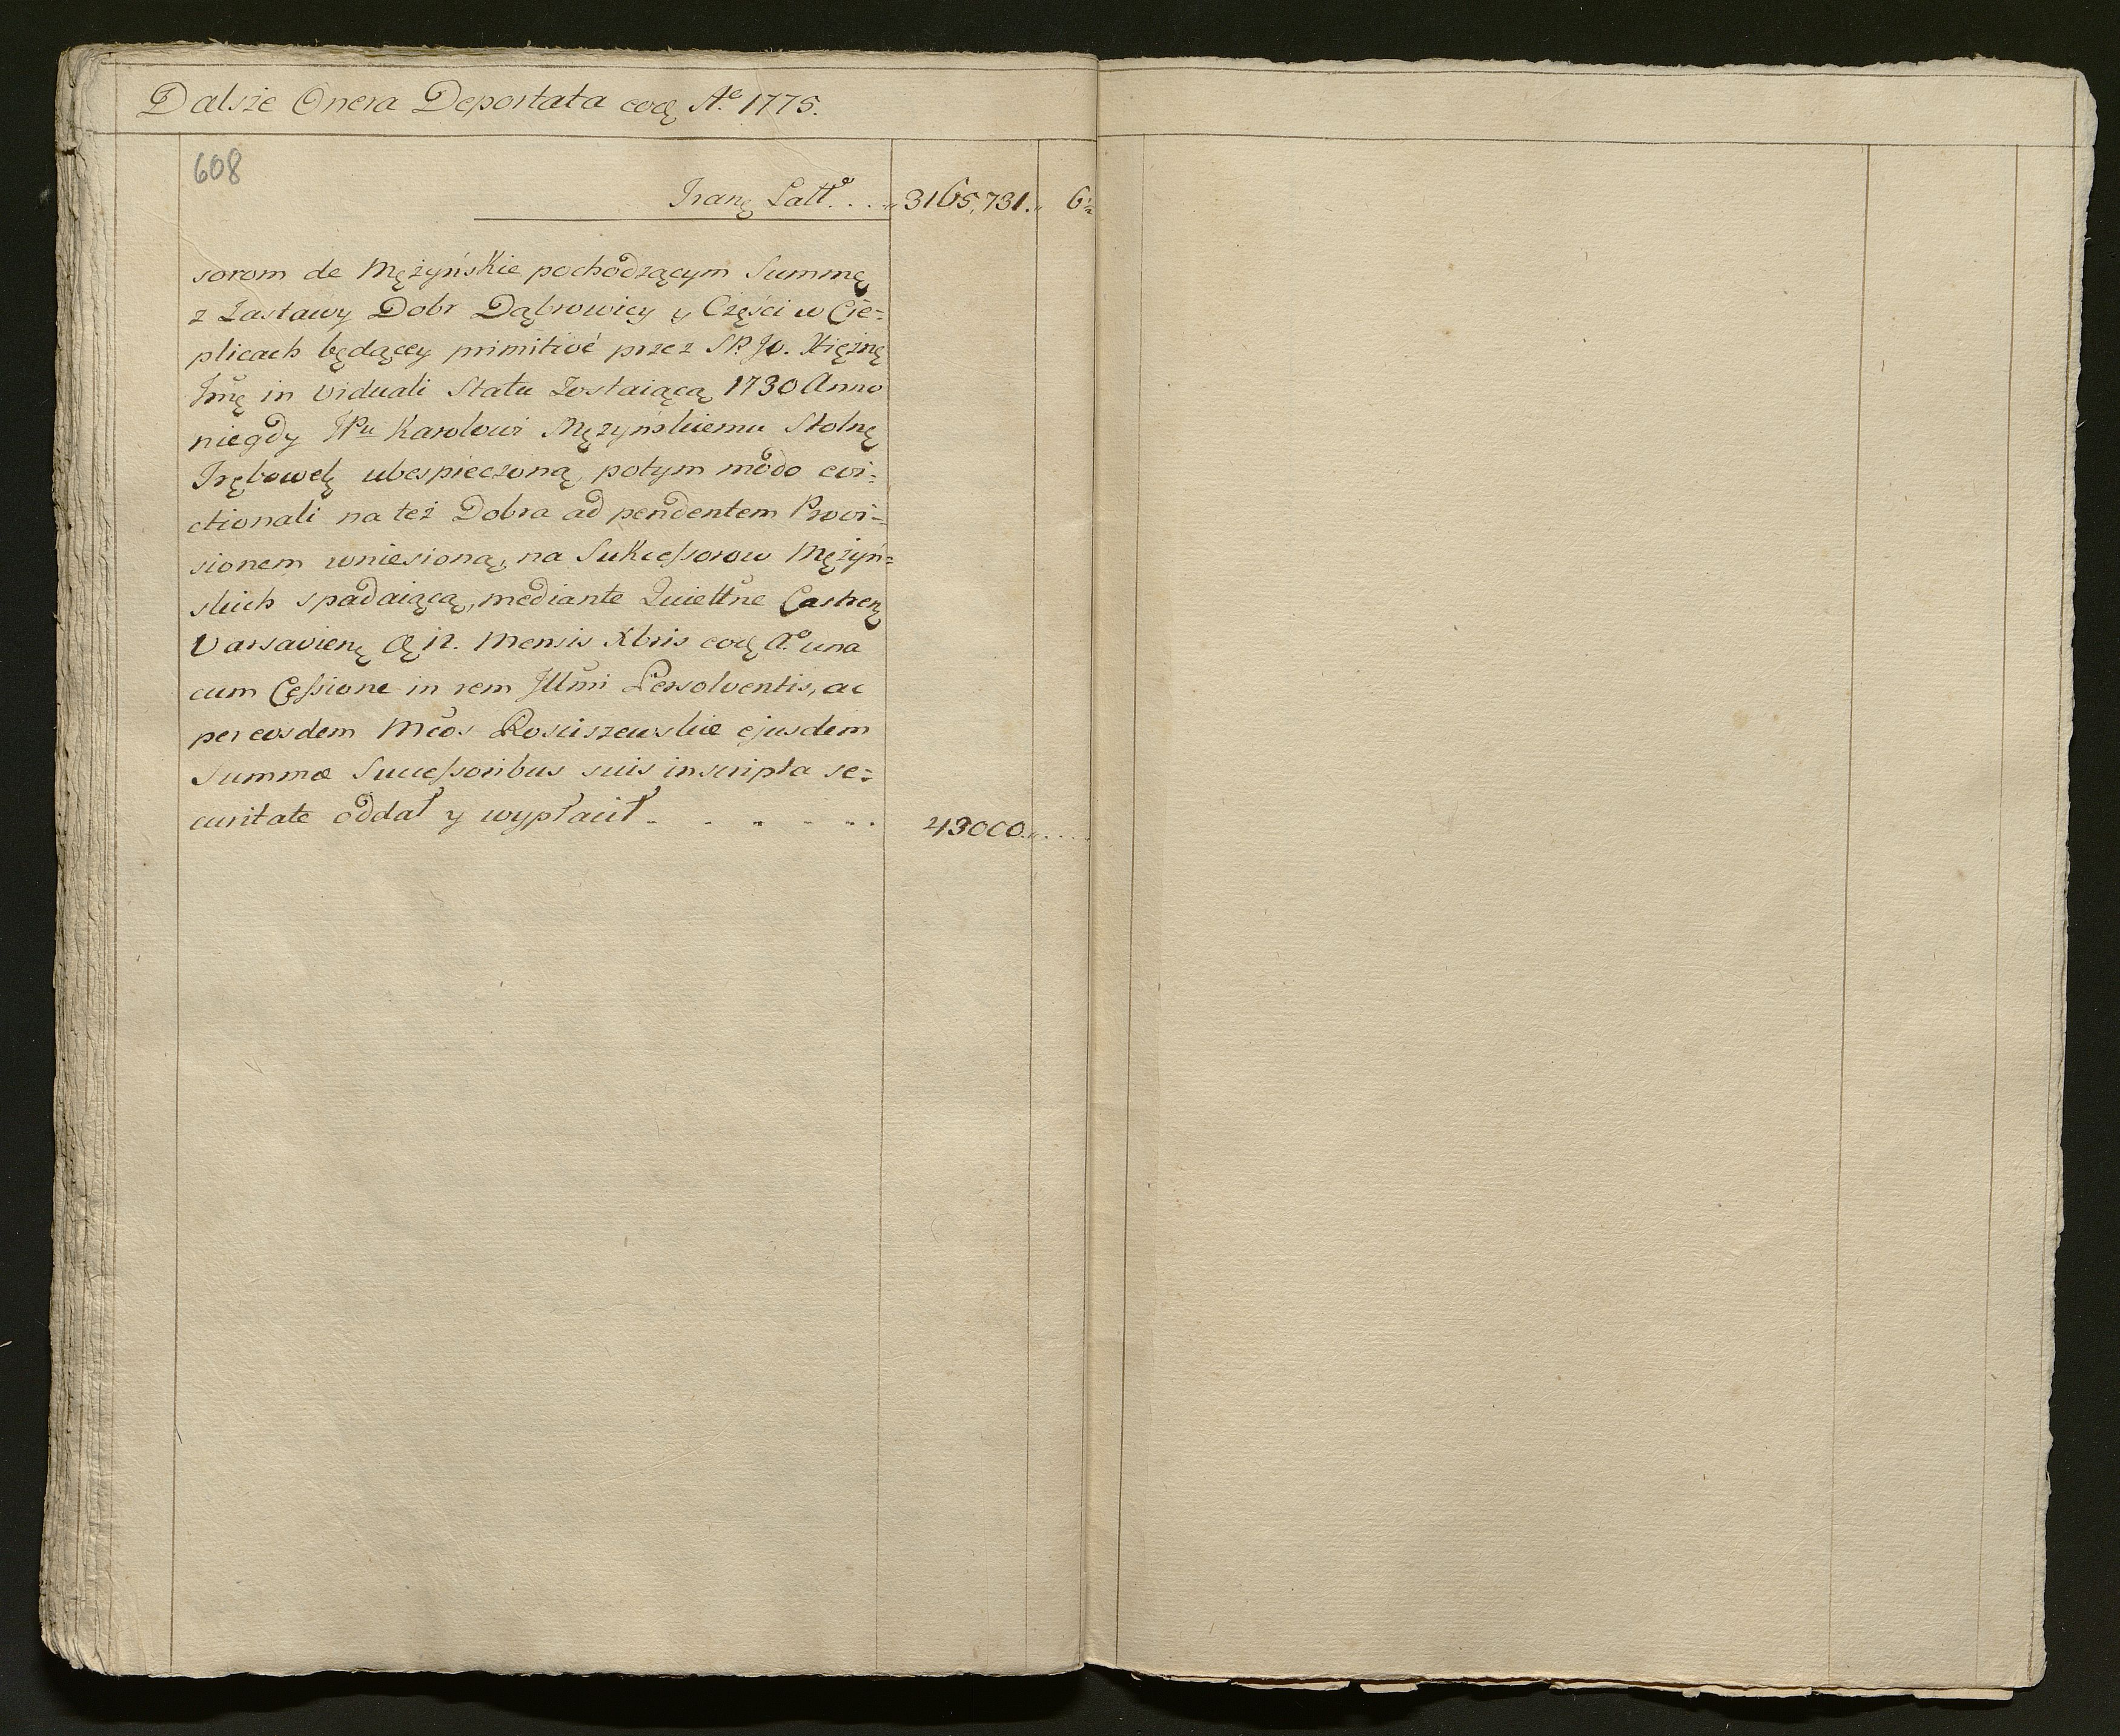 Dalsze Onera Deportata eodę Aº 1775.
608
Tranę Latt.º . . „ 3165,731. „ 6½
sorom de Mężyńskie pochodzącym Summę
z Zastawy Dobr Dąbrowicy y Części w Cie=
plicach będącey primitivé przez SP. Jo. Xiężnę
Jmę in Viduali Statu Zostaiącą 1730 Anno
niegdy JPu Karolowi Mężyńskiemu Stolnę
Trębowelę ubespieczoną, potym módo evi=
ctionali na też Dobra ad pendentem Provi=
sionem wniesioną, na Sukcessorow Mężyń=
skich spadaiącą, mediante Quiettne Castrenę
Varsavienę 12. Mensis Xbris eodę Aº una
cum Cessione in rem Jllmi Persolventis, ac
per eosdem Mcos Rosciszewskie ejusdem
Summæ Successoribus suis inscripta se=
curitate oddał y wypłacił . . . . . . 43000. „ . . .